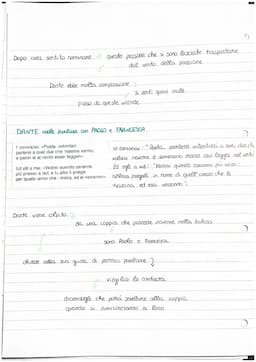 Dopo aver sentito nominare queste persone che si sono lasciate trasportare
dal vento della passione
Dante ebbe molta compassione
si sentì quasi male
preso da queste vicende
DANTE vuole parlare con PAOLO e FRANCESCA
I' cominciai: «Poeta, volontieri
parlerei a quei due che 'nsieme vanno,
e paion sì al vento esser leggeri».
Ed elli a me: «Vedrai quando saranno
più presso a noi; e tu allor li priega
per quello amor che i mena, ed ei verranno».
Io cominciai: "Poeta, parlerei volentieri a quei due che
volano insieme e sembrano mossi così leggeri nel vento
Ed egli a me: "Vedrai quando saranno più vicini:
allora pregali in nome di quell'amore che li
ed essi verranno".
Dante viene colpito
da una coppia che procede insieme nella bufera
sono Paolo e Francesca
chiede alla sua guida di potersi parlare
Virgilio lo conforta
dicendogli che potrà parlare alla coppia
quando si avvicineranno a loro